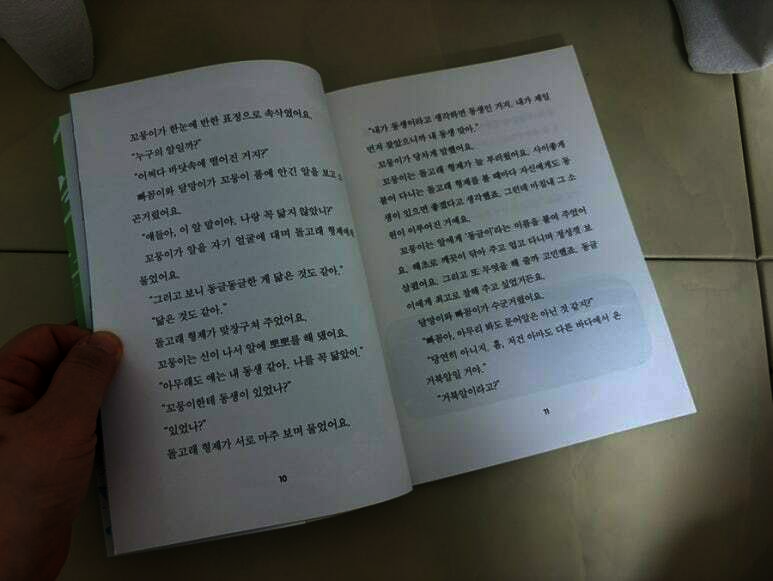 꼬뭉이가 한눈에 반한 표정으로 속삭였어요.
"누구의 알일까?"
"어쩌다 바닷속에 떨어진 거지?"
빠꼼이와 담담이가 꼬뭉이 품에 안긴 알을 보고 소
곤거렸어요.
"얘들아, 이 알 말이야, 나랑 꼭 닮지 않았니?"
꼬뭉이가 알을 자기 얼굴에 대며 돌고래 형제에게
물었어요.
"그러고 보니 둥글둥글한 게 닮은 것도 같아."
"닮은 것도 같아."
돌고래 형제가 맞장구쳐 주었어요.
꼬뭉이는 신이 나서 알에 뽀뽀를 해 댔어요.
"아무래도 얘는 내 동생 같아. 나를 꼭 닮았어."
"꼬뭉이한테 동생이 있었나?"
"있었나?"
돌고래 형제가 서로 마주 보며 물었어요.
10
"내가 동생이라고 생각하면 동생인 거지. 내가 제일
먼저 찾았으니까 내 동생 맞아."
꼬뭉이가 당차게 말했어요.
꼬뭉이는 돌고래 형제가 늘 부러웠어요. 사이좋게
붙어 다니는 돌고래 형제를 볼 때마다 자신에게도 동
생이 있으면 좋겠다고 생각했죠. 그런데 마침내 그 소
원이 이루어진 거예요.
꼬뭉이는 알에게 '동글이'라는 이름을 붙여 주었어
요. 해초로 깨끗이 닦아 주고 업고 다니며 정성껏 보
살폈어요. 그리고 또 무엇을 해 줄까 고민했죠. 동글
이에게 최고로 잘해 주고 싶었거든요.
담담이와 빠꼼이가 수군거렸어요.
"빠꼼아, 아무리 봐도 문어알은 아닌 것 같지?"
"당연히 아니지. 흠, 저건 아마도 다른 바다에서 온
거북알일 거야."
"거북알이라고?"
11